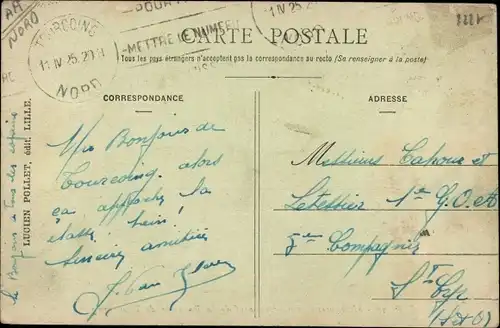 AR
NORD
TOURCOING
11 IV 25
NORD
METTRE LE NUMERO
1 IV 25
CARTE POSTALE
Tous les pays étrangers n'acceptent pas la correspondance au recto (Se renseigner à la poste)
CORRESPONDANCE
ADRESSE
LUCIEN POLLET, édit. LILLE.
le Bonjour à tous les copains
Mes Bonjours de
Tourcoing. alors
ça approche la
classe hein!
Sincère amitiés
J. Van
Messieurs Cahour et
Letessier 1er G.O.A
5me Compagnie
St Cyr
(S et O)